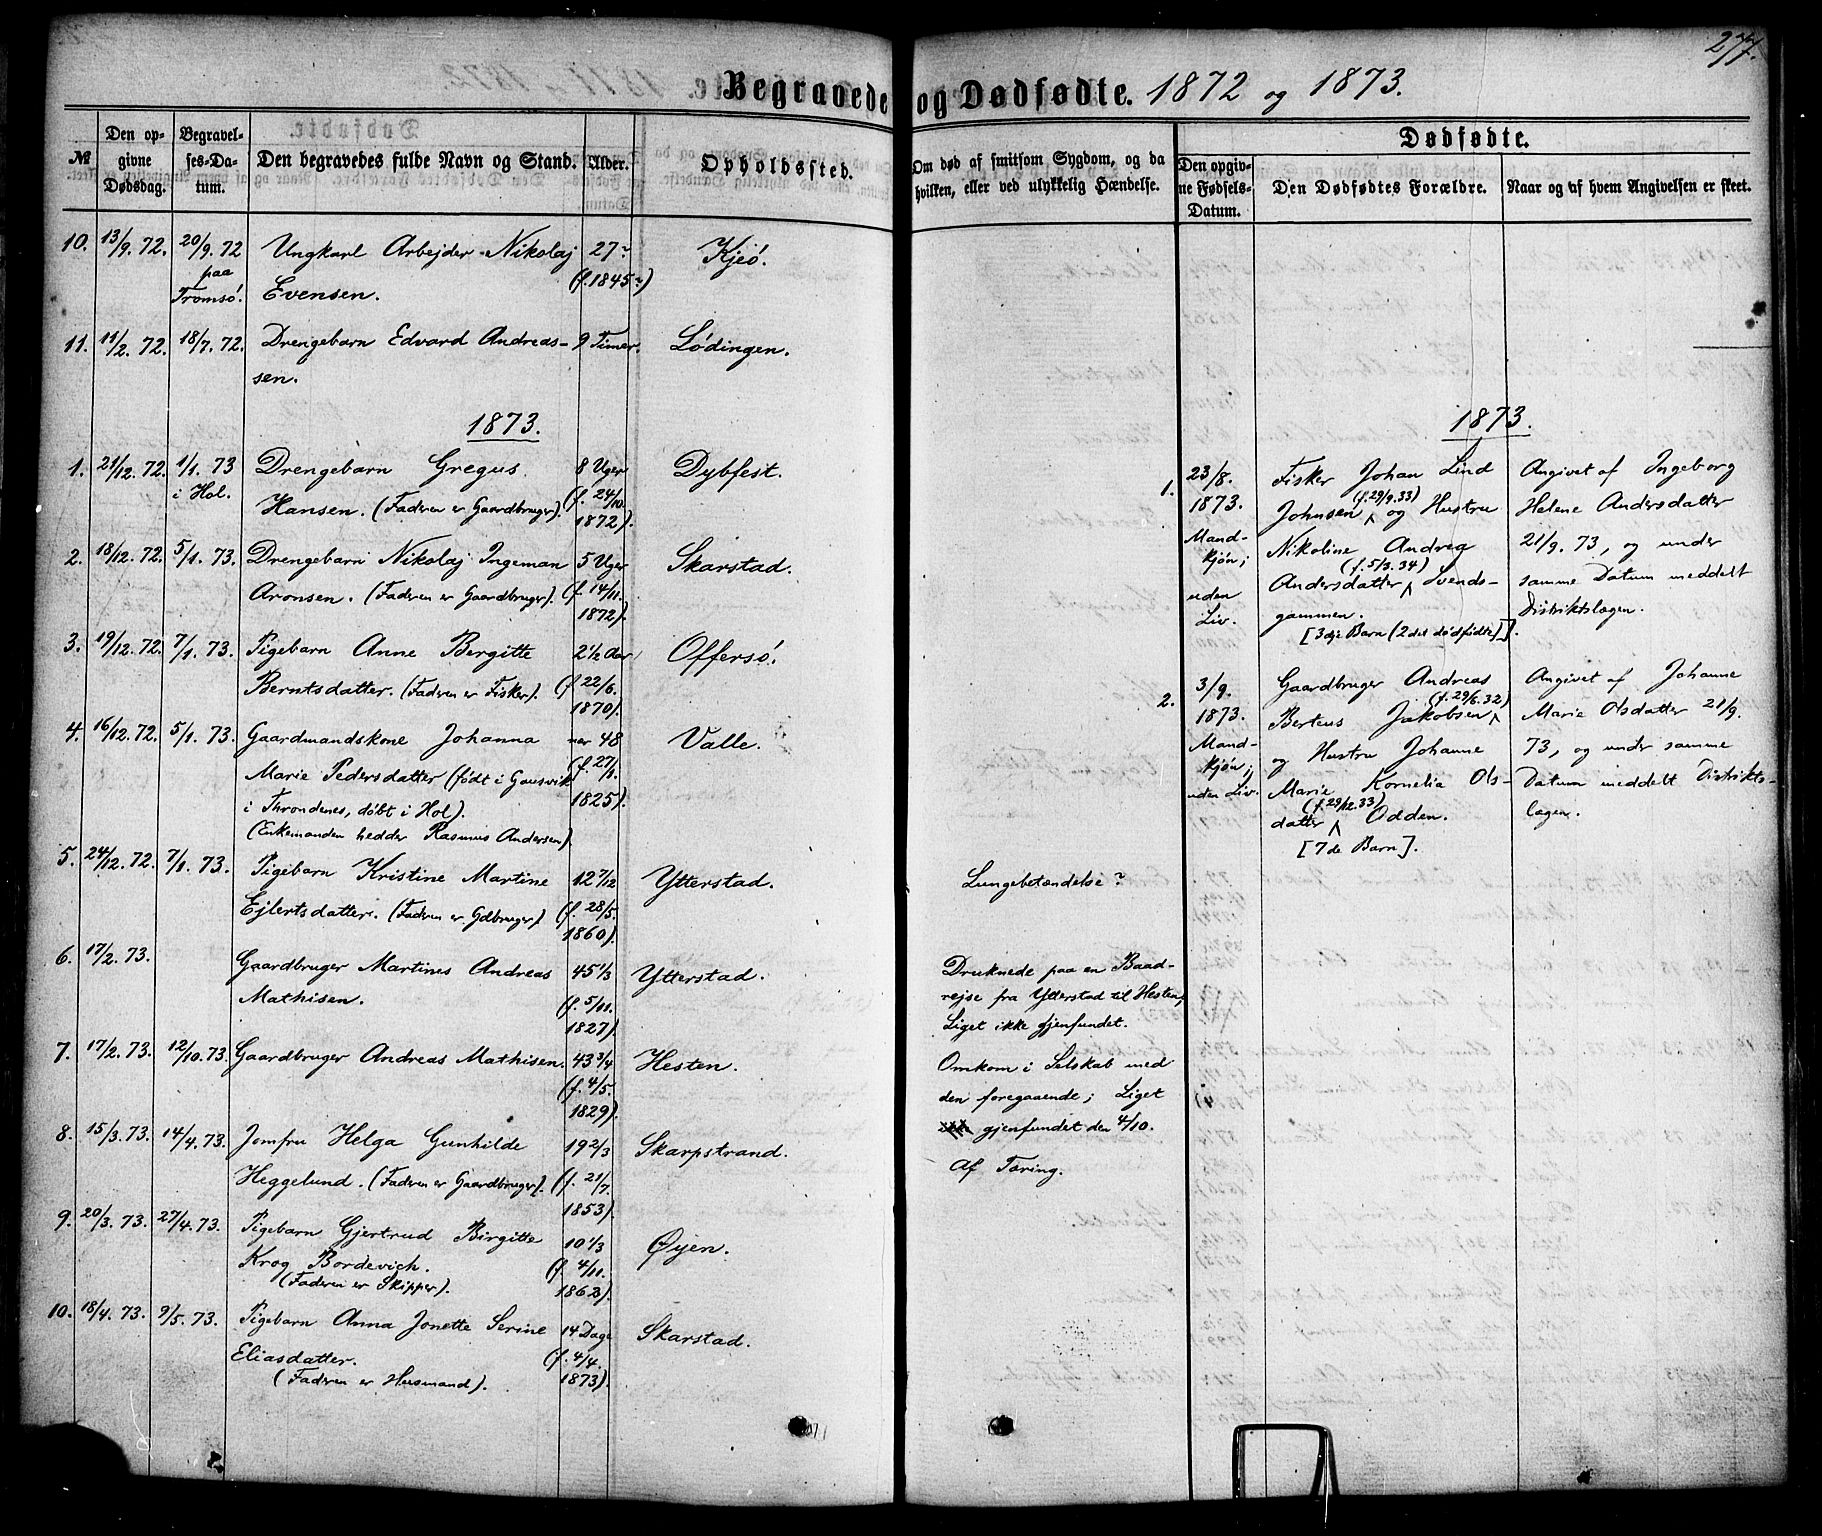 277.
Begravede og Dødfødte. 1872 og 1873.
№
Den opgivne Dødsdag.
Begravelses-Datum.
Den begravedes fulde Navn og Stand.
Alder.
Opholdssted.
Om død af smitsom Sygdom, og da
hvilken, eller ved ulykkelig Hændelse.
Dødfødte.
Den opgivne Fødsels-Datum.
Den Dødfødtes Forældre.
Naar og af hvem Angivelsen er skeet.
10. 13/9. 72. 20/9. 72 Ungkarl Arbejder Nikolaj 27? Kjeö.
paa (f. 1845?)
Tromsö. Evensen.
11. 11/2. 72. 18/7. 72. Drengebarn Edvard Andreas- 9 Timer. Lödingen.
sen.
1873.
1. 21/12. 72. 1/1. 73 Drengebarn Gregus 8 Uger Dybfest.
i Hol. Hansen. (Faderen er Gaardbruger). (f. 24/10.
1872).
2. 18/12. 72. 5/1. 73. Drengebarn Nikolaj Ingeman 5 Uger Skarstad.
Aronsen. (Faderen er Gaardbruger). (f. 14/11.
1872).
3. 19/12. 72. 7/1. 73. Pigebarn Anne Bergitte 2 1/2 Aar Offersö.
Berntsdatter. (Faderen er Fisker). (f. 22/6.
1870).
4. 16/12. 72. 5/1. 73. Gaardmandskone Johanna nær 48 Valle.
Marie Pedersdatter (født i Gausvik (f. 27/1.
i Throndenes, döbt i Hol). 1825).
(Enkemanden hedder Rasmus Andersen).
5. 24/12. 72. 7/1. 73. Pigebarn Kristine Martine 12 7/12 Ytterstad. Lungebetændelse?
Ejlertsdatter. (Faderen er Gdbruger) (f. 28/5.
1860).
6. 17/2. 73. Gaardbruger Martines Andreas 45 1/3 Ytterstad. Druknede paa en Baad-
Mathisen. (f. 5/11. rejse fra Ytterstad til Hesten,
1827). Liget ikke gjenfundet.
7. 17/2. 73. 12/10. 73. Gaardbruger Andreas Mathisen. 43 3/4 Hesten. Omkom i Selskab med
(f. 4/5. den foregaaende; Liget
1829). ikke gjenfundet den 4/10.
8. 15/3. 73. 14/4. 73. Jomfru Helga Gunhilde 19 2/3 Skarpstrand. Af Tæring.
Heggelund. (Faderen er Gaardbruger). (f. 21/7.
1853).
9. 20/3. 73. 27/4. 73. Pigebarn Gjertrud Birgitte 10 1/3 Øyen.
Krog Bordevich. (f. 4/11.
(Faderen er Skipper). 1862).
10. 18/4. 73. 9/5. 73. Pigebarn Anna Jonette Serine 14 Dage Skarstad.
Eliasdatter. (f. 4/4.
(Faderen er Husmand). 1873).
1873.
1. 23/8. Fisker Johan Lind Angivet af Ingeborg
(f. 29/9. 33)
1873. Johnsen og Hustru Helene Andersdatter
Mand- Nikoline Andrea 21/9. 73, og under
(f. 5/3. 34)
kjön; Andersdatter Svends- samme Datum meddelt
uden gammen. Distriktslægen.
Liv. [3dje Barn (2det dödfödte)].
2. 3/9. Gaardbruger Andreas Angivet af Johanne
(f. 29/6. 32)
1873. Berteus Jakobsen Marie Olsdatter 21/9.
Mand- og Hustru Johanne 73, og under samme
kjön; Marie Kornelia Ols- Datum meddelt Distrikts-
uden Liv. (f. 29/12. 33)
datter Odden. lægen.
[7de Barn].